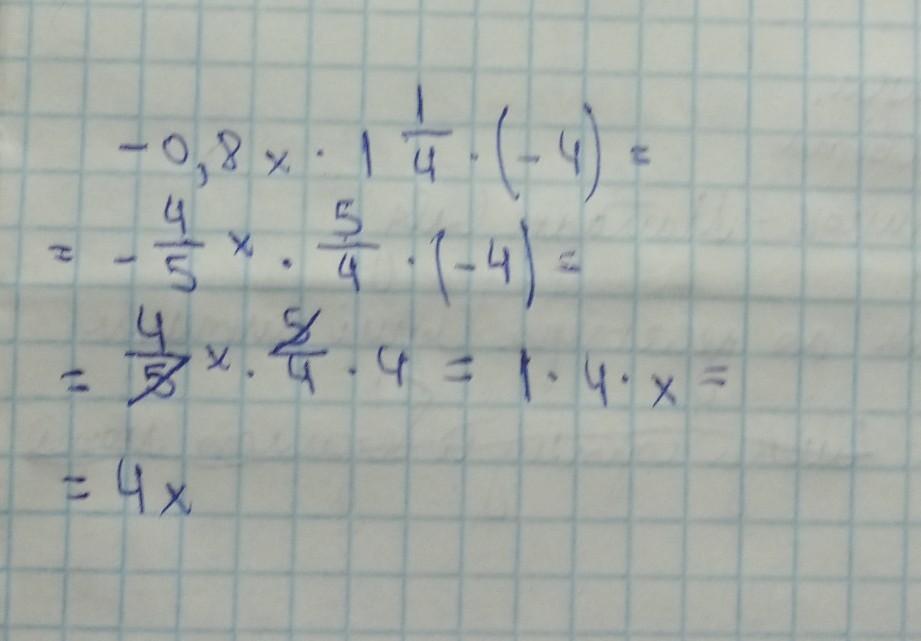 -0,8x · 1 1/4 · (-4) =
= - 4/5 x · 5/4 · (-4) =
= 4/5 x · 5/4 · 4 = 1 · 4 · x =
= 4x